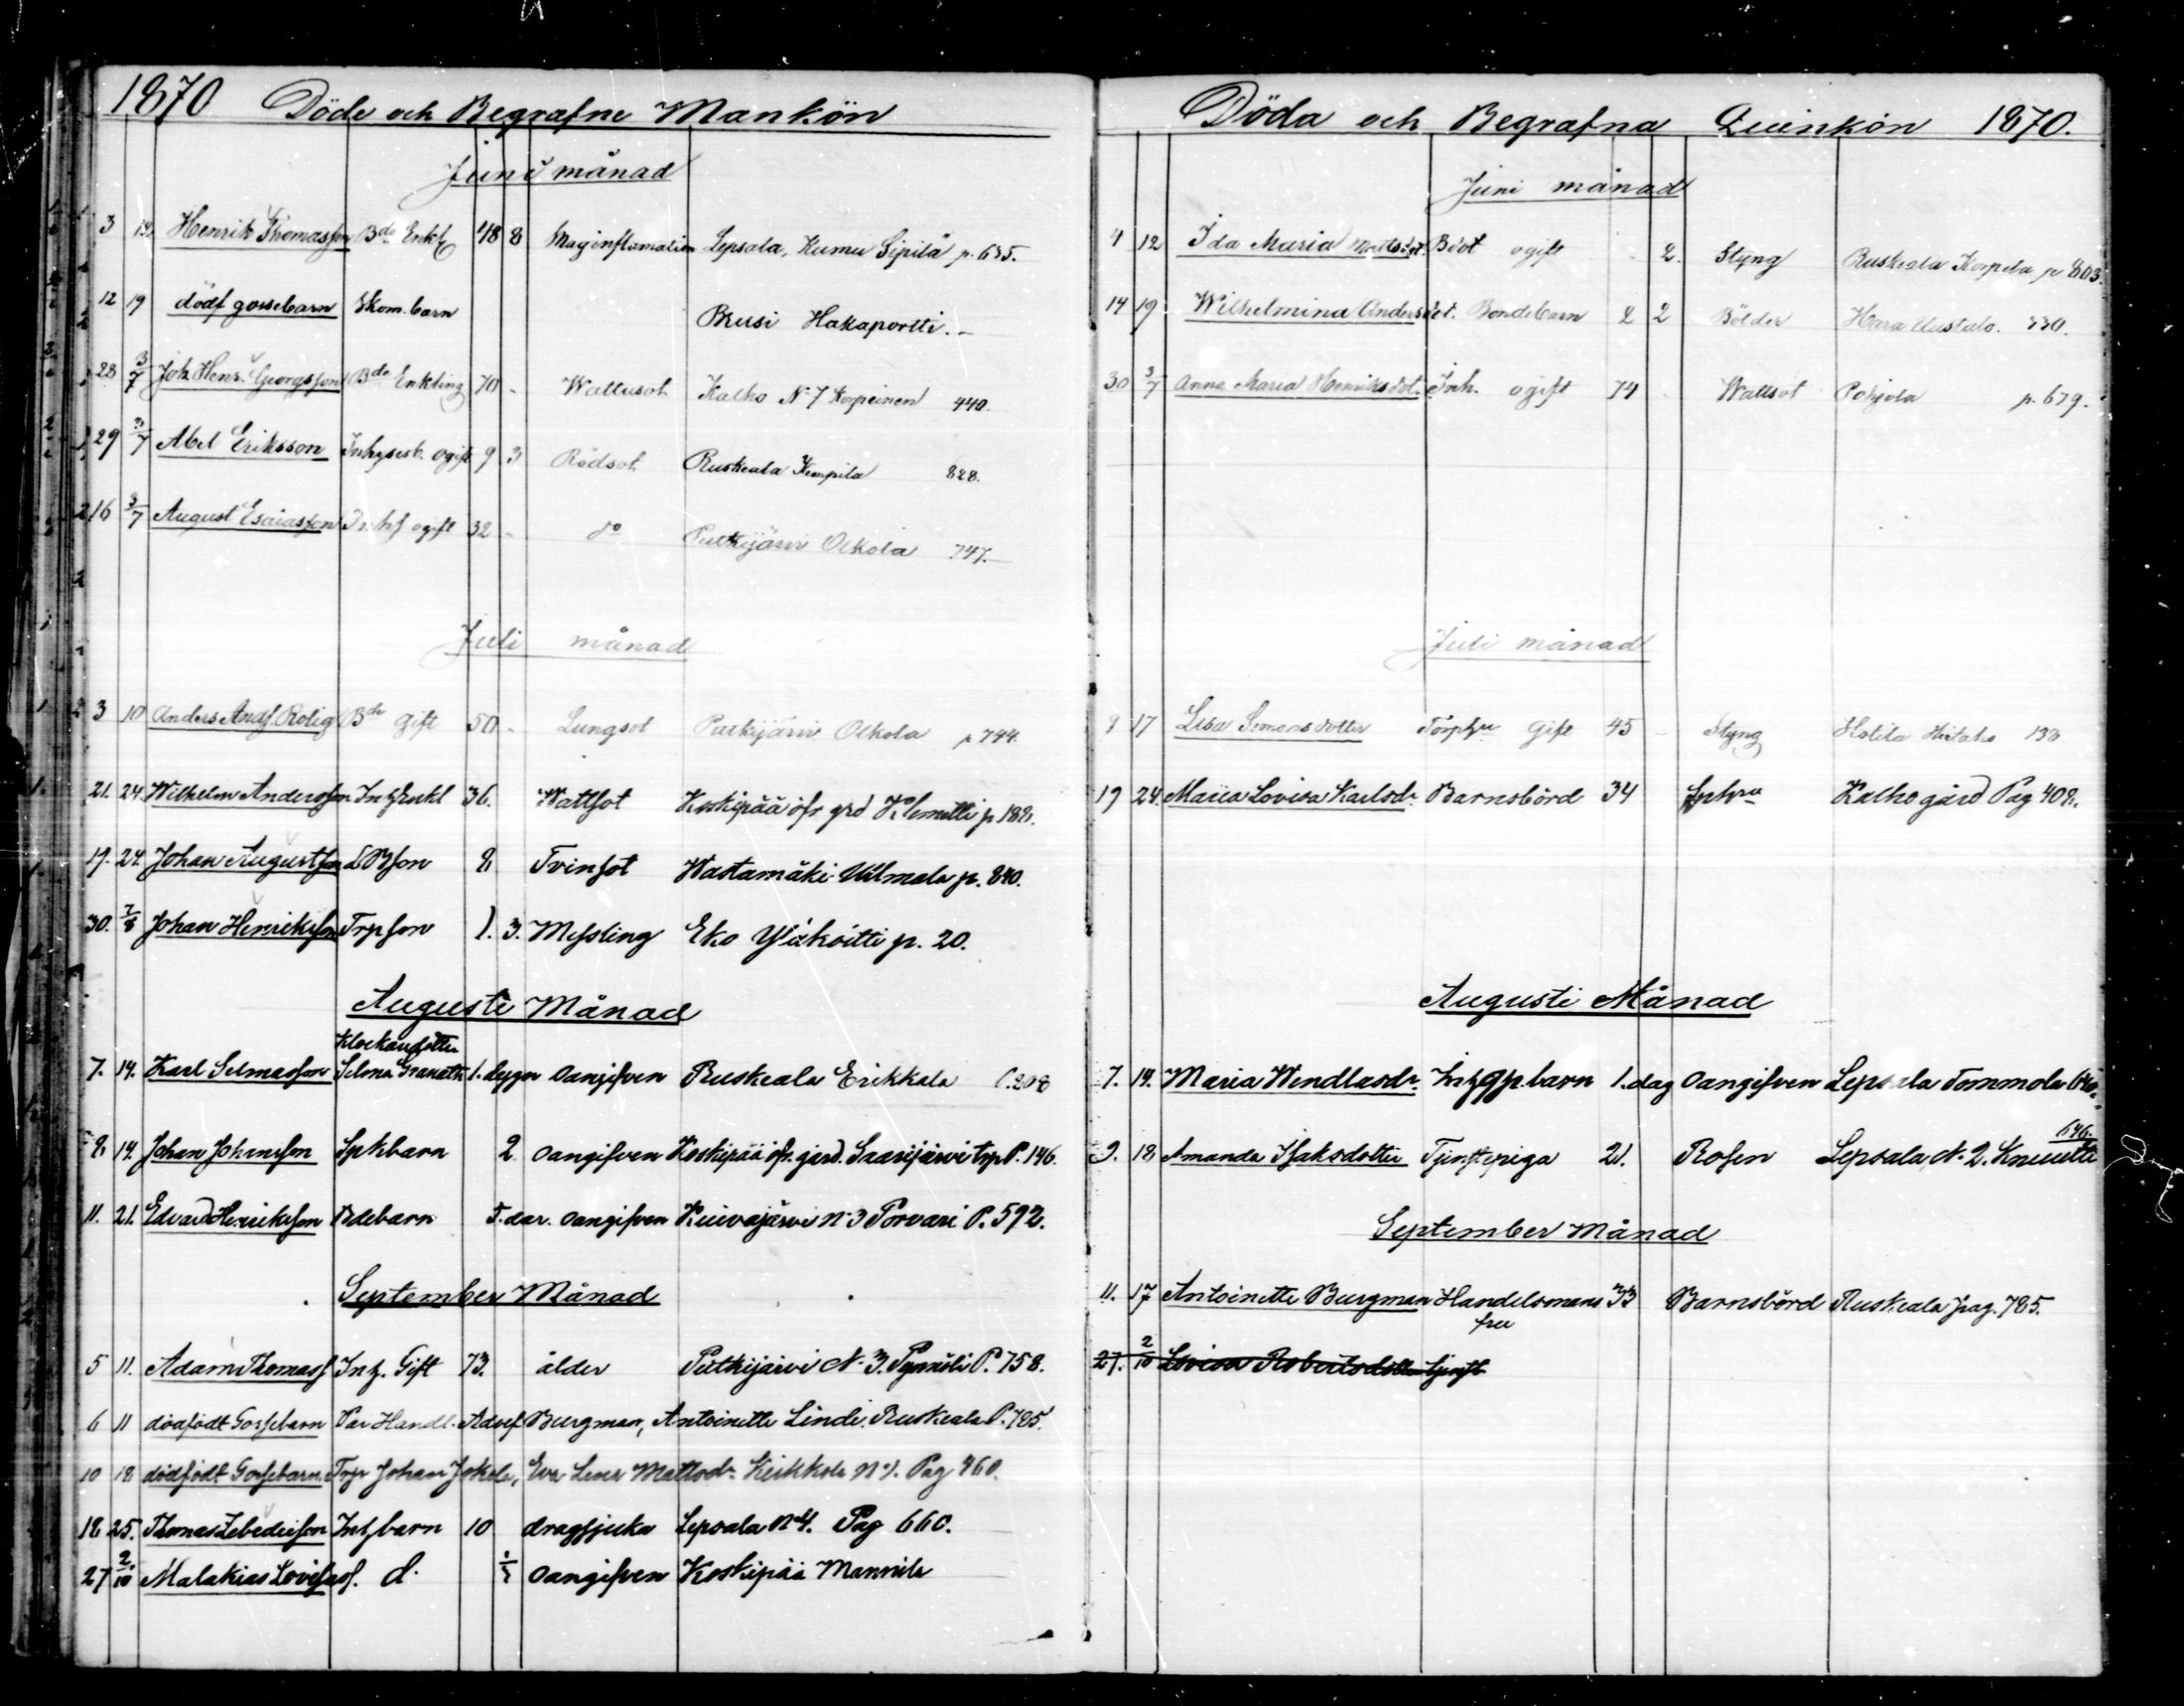 1870 Döde och Begrafne Mankön
Juni månad
3 19 Henrik Thomasson Bde Enkl 48 8 Maginflamation Lepsala, Kumu Sipilä p. 635.
12 19 dödf gossebarn Skom. barn Brusi Hakaportti.
28 3/7 Joh Henr. Georgsson Bde Enkling 70 - Wattusot Kalho No 7 Korpeinen 440.
29 3/7 Abel Eriksson Inhysesb. ogift 9 3 Rödsot Ruskeala 828.
16 3/7 August Esaiasson Inhs ogift 32 - do Putkijärvi Olkola 747.
Juli månad
3 10 Anders Andf. Rolig Bde Gift 50 - Lungsot Putkijärvi Olkola p 744.
21. 24. Wilhelm Andersson Inh Enkl 36. Wattsot Koskipää öfr grd Klemetti p 188.
19. 24. Johan Augustsson 8 Tvinsot Wastamäki Uilmala p. 840.
30. 7/8 Johan Henriksson Trpson 1. 3. Messling Eko p. 20.
Augusti Månad
Klockardotter
7. 14. Karl Selmasson Selma Granath 1. dygn oangifven Ruskeala Erikkala P. 208
8. 14. Johan Johansson Spkbarn 2. oangifven Koskipää öfr. gård. Saarijärvi trp P. 146.
11. 21. Edvard Henriksson Bdebarn 5. dar. oangifven Kuivajärvi No 3 Porvari P. 592.
September Månad
5 11. Adam Thomass Inh. Gift 73. ålder Putkijärvi No 3. P. 758.
6 11 dödfödt Gossebarn Par Handl. Adolf Burgman, Antoinette Linde. Ruskeala P. 785.
10 18 dödfödt Gossebarn Trp Johan Jokela, Eva Lena Mattsdr. Keikkola No 1. Pag 460.
18 25. Thomas Zebedeisson Inhbarn 10 dragsjuka Lepsala No 4. Pag 660.
27 2/10 Malakias Lovisas. d. oangifven Koskipää Mannila
Döda och Begrafna Quinkön 1870.
Juni månad
4 12 Ida Maria Mattsdot. Bdot ogift - 2. Styng Ruskeala Korpela p 803.
14 19 Wilhelmina Andersdot. Bondebarn 2 2 Bölder Hara Uustalo. 330.
30 3/7 Anna Maria Henriksdot. Inh. ogift 74 Wattsot Pohjola p. 679.
Juli månad
9 17 Lisa Simonsdotter Torphu Gift 45 - Styng Halila 138
19 24. Maria Lovisa Karlsdr. Barnsbörd 34 Kalho gård Pag 408.
Augusti Månad
7. 14. Maria Wendlasdr. Inhqpbarn 1. dag oangifven Lepsala Tommola 640.
646.
9. 18 Amanda Isaksdotter Tjenstepiga 21. Rosen Lepsala, No 2. Knuutti
September Månad
11. 17 Antoinette Burgman Handelsmans 33 Barnsbörd Ruskeala pag. 785.
fru
27. 2/10 Lovisa Robertsdotter